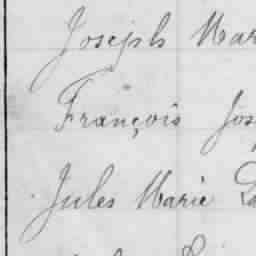 Joseph Mar
François Jos
Jules Marie La